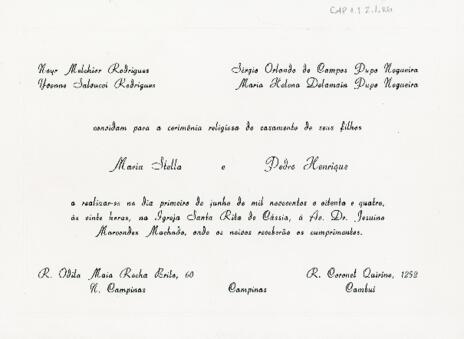 Neyr Melchier Rodrigues
Yvonne Salvucci Rodrigues
Sérgio Orlando de Campos Pupo Nogueira
Maria Helena Delamain Pupo Nogueira
convidam para a cerimônia religiosa do casamento de seus filhos
Maria Stella e Pedro Henrique
a realizar-se no dia primeiro de junho de mil novecentos e oitenta e quatro,
às vinte horas, na Igreja Santa Rita de Cássia, à Av. Dr. Jesuino
Marcondes Machado, onde os noivos receberão os cumprimentos.
R. Odila Maia Rocha Brito, 60
N. Campinas
Campinas
R. Coronel Quirino, 1252
Cambuí